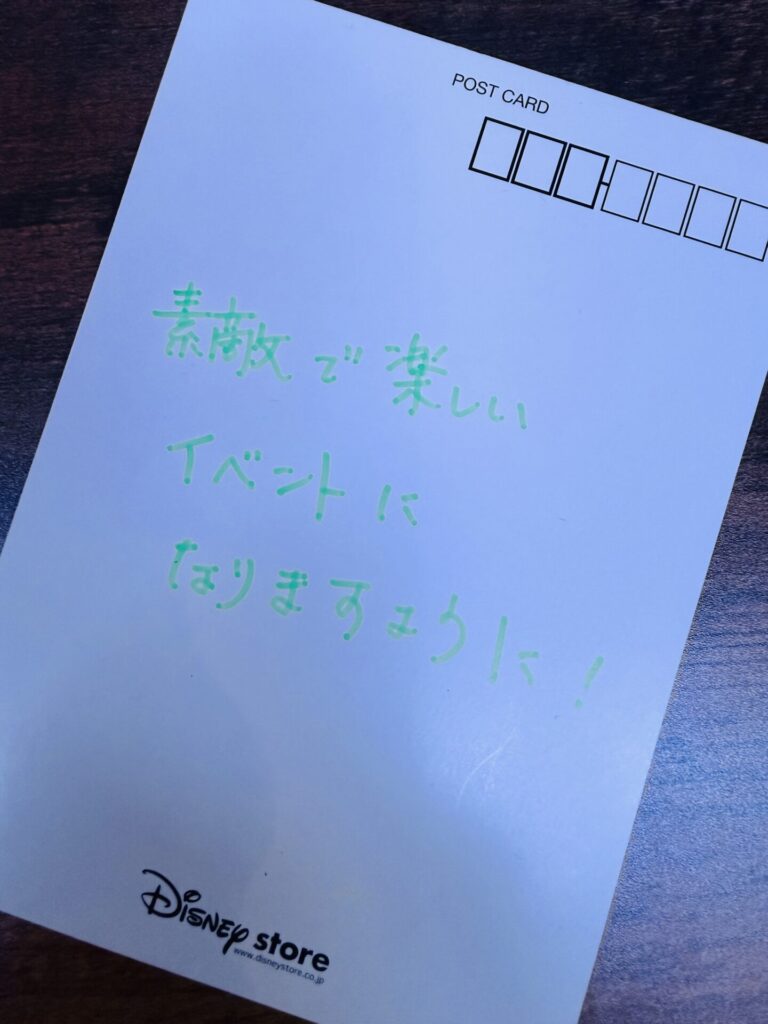 POST CARD
素敵で楽しい
イベントに
なりますように!
Disney store
www.disneystore.co.jp